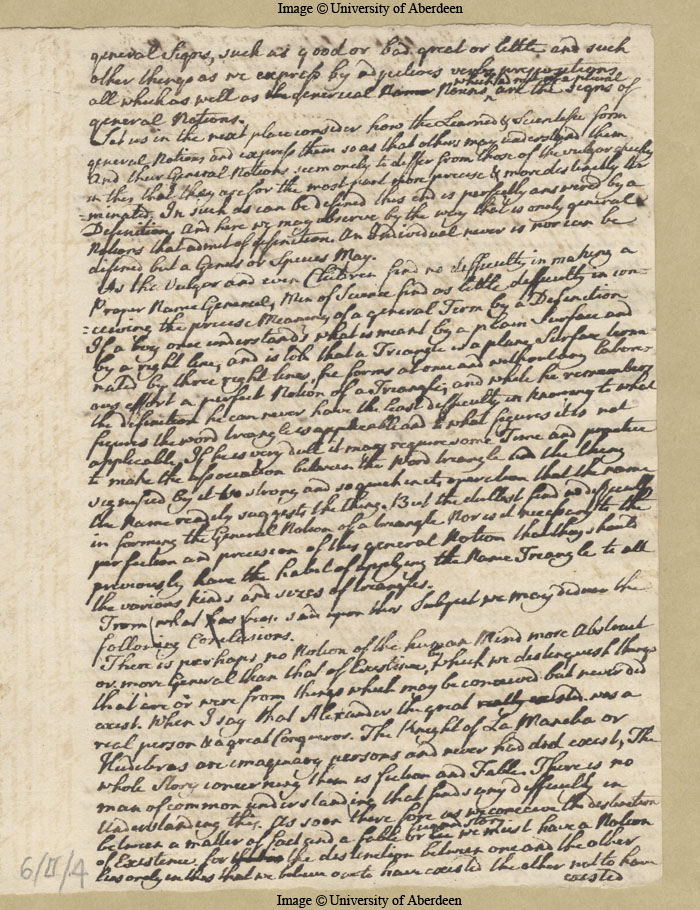 Image © University of Aberdeen
general Signs, such as good or bad great or little and such
other things as we express by adjectives verbs prepositions
all which as well as the generical Name Nouns are the signs of
general Notions.
Let us in the next place consider how the Learned & Scientifick form
general Notions and express them so as that others may understand them
And their General Notions seem onely to differ from those of the vulgar chiefly
in this that they are for the most part more precise & more distinctly de
=minate. In such as can be defined this end is perfectly answered by a
Definition, And here we may observe by the way that is onely general
Notions that admit of definition. An Individual never is nor can be
defined but a Genus or Species May.
As the Vulgar and even Children find no difficulty in making a
Proper Name General, Men of Science find as little difficulty in con-
=ceiving the precise Meaning of a general Term by a Definition
If a boy once understands what is meant by a plain Surface and
by a right line, and is told that a Triangle is a plane Surface term
nated by three right lines, he forms at once and without any labori-
ous effort a perfect Notion of a Triangle; and while he remembers
the definition he can never have the least difficulty in knowing to what
figures the word triangle is applicable and to what figures it is not
applicable. If he is very dull it may require some Time and practice
to make the association between the Word triangle and the thing
signified by it so strong and so quick in its operation that the name
the Name readily suggests the thing. But the dullest find no difficulty
in forming the General Notion of a triangle Nor is it necessary to the
perfection and precision of this general Notion that they should
previously have the habit of applying the Name Triangle to all
the various kinds and sizes of triangles.
From what has been said upon this Subject we may deduce the
following Conclusions.
There is perhaps no Notion of the human Mind more Abstract
or more General than that of Existence, by which we distinguish things
that are or were from things which may be conceived but never did
exist. When I say that Alexander the great really existed was a
real person & a great Conqueror. The Knight of La Mancha or
Hudibras are imaginary persons and never had did exist, The
whole Story concerning them is fiction and Fable. There is no
man of common understanding that finds any difficulty in
Understanding this. As soon therefore as we conceive the distinction
between a matter of fact and a fable or story we must have a Notion
of Existence. for the distinction between one and the other
lies onely in this that we believe one to have existed the other not to have
existed
6/II/4
Image © University of Aberdeen